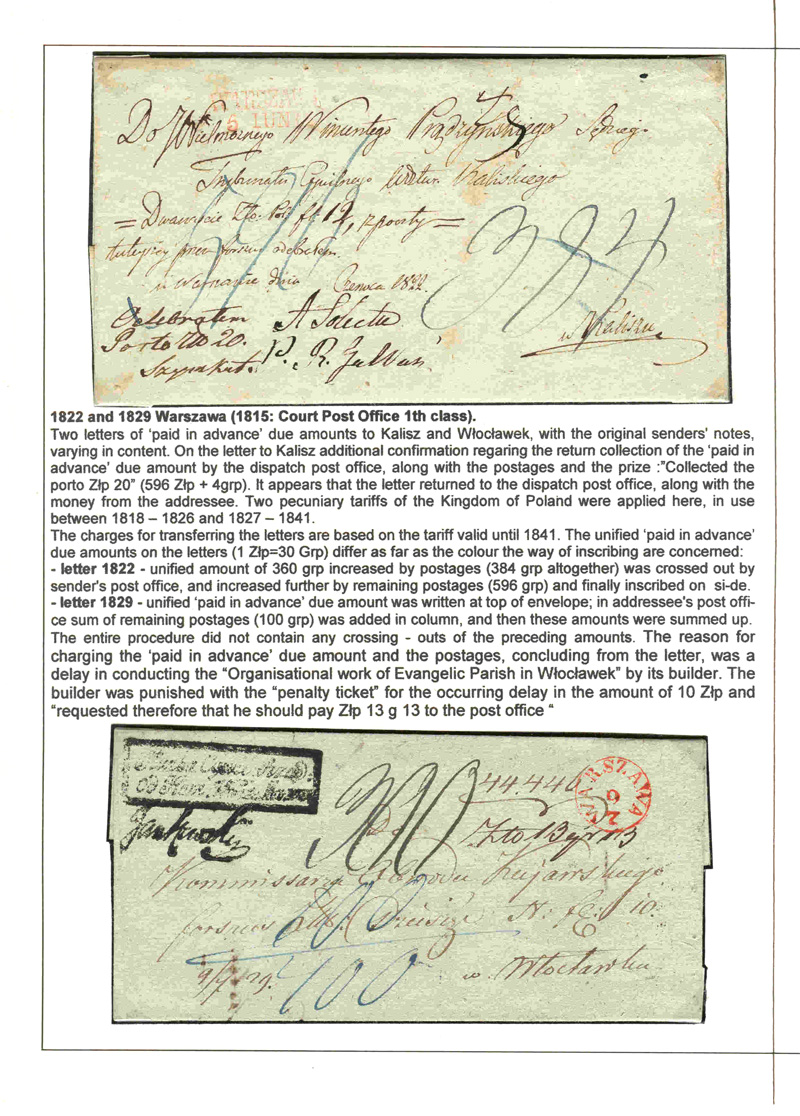 WARSZAWA
5 IUNI
Do Wielmożnego Wincentego Prądzyńskiego Sędziego
Trybunału Cywilnego Kaliskiego
= Dwanaście Złt. Pol. fl. 12, z poczty =
tuteyszey odebrałem.
w Warszawie dnia Czerwca 1822.
384
Odebrałem
Porto Złb 20.
w Kaliszu
1822 and 1829 Warszawa (1815: Court Post Office 1th class).
Two letters of ‘paid in advance’ due amounts to Kalisz and Włocławek, with the original senders' notes,
varying in content. On the letter to Kalisz additional confirmation regaring the return collection of the ‘paid in
advance’ due amount by the dispatch post office, along with the postages and the prize :”Collected the
porto Złp 20” (596 Złp + 4grp). It appears that the letter returned to the dispatch post office, along with the
money from the addressee. Two pecuniary tariffs of the Kingdom of Poland were applied here, in use
between 1818 – 1826 and 1827 – 1841.
The charges for transferring the letters are based on the tariff valid until 1841. The unified ‘paid in advance’
due amounts on the letters (1 Złp=30 Grp) differ as far as the colour the way of inscribing are concerned:
- letter 1822 - unified amount of 360 grp increased by postages (384 grp altogether) was crossed out by
sender's post office, and increased further by remaining postages (596 grp) and finally inscribed on si-de.
- letter 1829 - unified ‘paid in advance’ due amount was written at top of envelope; in addressee's post offi-
ce sum of remaining postages (100 grp) was added in column, and then these amounts were summed up.
The entire procedure did not contain any crossing - outs of the preceding amounts. The reason for
charging the ‘paid in advance’ due amount and the postages, concluding from the letter, was a
delay in conducting the “Organisational work of Evangelic Parish in Włocławek” by its builder. The
builder was punished with the “penalty ticket” for the occurring delay in the amount of 10 Złp and
“requested therefore that he should pay Złp 13 g 13 to the post office “
44.440
WARSZAWA
Złp 13 gr 13
Kommissarza Obwodu Kujawskiego
10.
100
9/7 29. w Włocławku